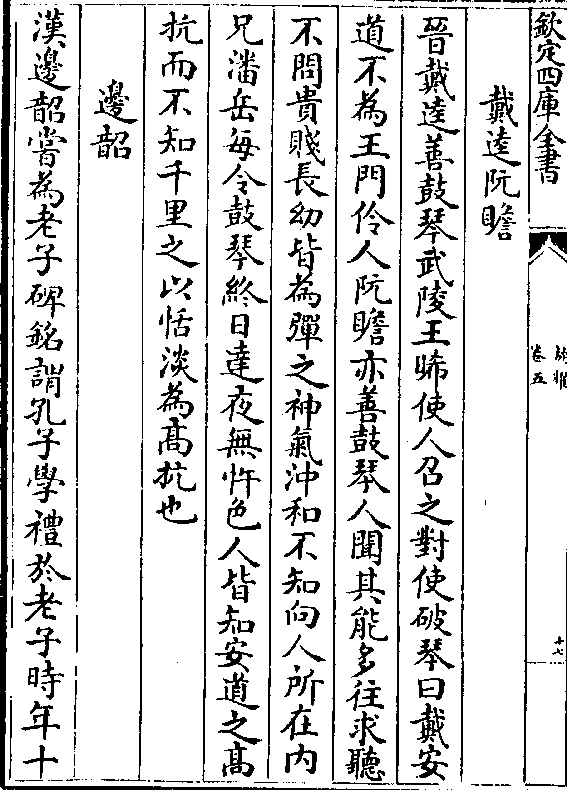 欽定四庫全書
卷五
十七
戴逵阮瞻
晉戴逵善鼓琴武陵王晞使人召之對使破琴曰戴安
道不為王門伶人阮瞻亦善鼓琴人聞其能多往求聽
不問貴賤長幼皆為彈之神氣沖和不知向人所在内
兄潘岳每令鼓琴終日達夜無忤色人皆知安道之髙
抗而不知千里之以恬淡為髙抗也
邊韶
漢邊韶嘗為老子碑銘謂孔子學禮於老子時年十